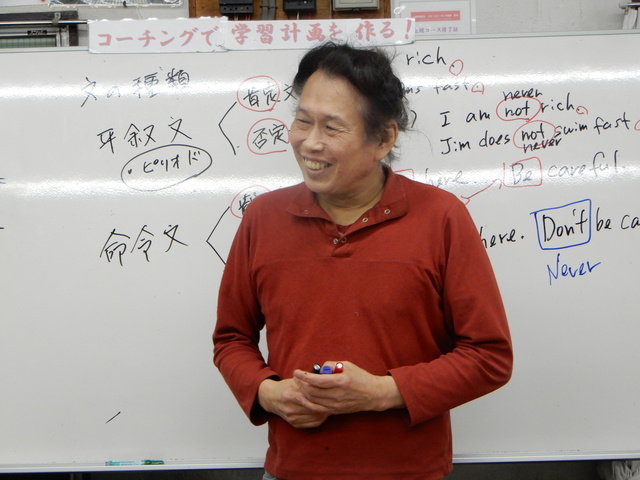 コーチングで 学習計画を 作る！
文の種類
平叙文
・ピリオド
肯定文
否定
rich.
fast.
never
I am not rich.
Jim does not swim fast.
never
here.
Be careful.
命令文
here.
Don't be ca
Never